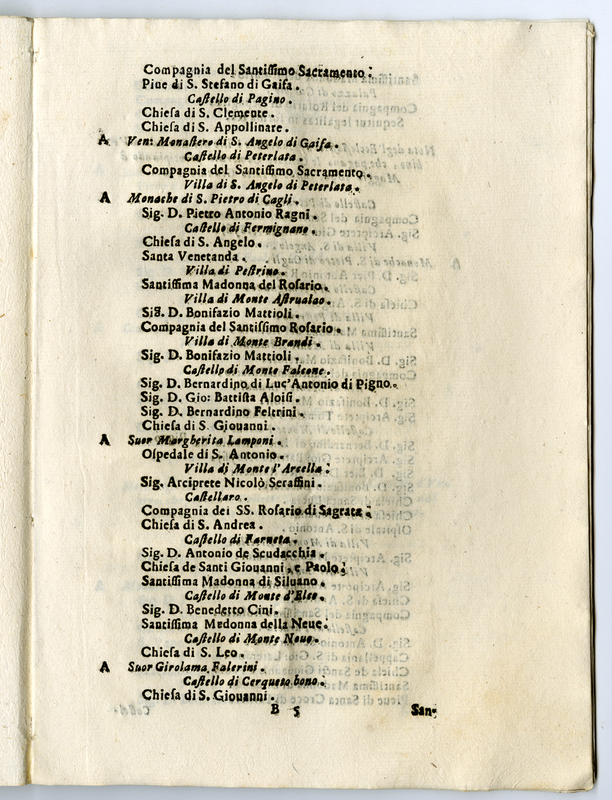 Compagnia del Santissimo Sacramento.
Pieue di S. Stefano di Gaifa.
Castello di Pagino.
Chiesa di S. Clemente.
Chiesa di S. Appollinare.
A Ven: Monastero di S. Angelo di Gaifa.
Castello di Peterlata.
Compagnia del Santissimo Sacramento.
Villa di S. Angelo di Peterlata.
A Monache di S. Pietro di Cagli.
Sig. D. Pietro Antonio Ragni.
Castello di Fermignano.
Chiesa di S. Angelo.
Santa Venetanda.
Villa di Pestrino.
Santissima Madonna del Rosario.
Villa di Monte Astrualdo.
Sig. D. Bonifazio Mattioli.
Compagnia del Santissimo Rosario.
Villa di Monte Brandi.
Sig. D. Bonifazio Mattioli.
Castello di Monte Falcone.
Sig. D. Bernardino di Luc'Antonio di Pigno.
Sig. D. Gio: Battista Aloisi.
Sig. D. Bernardino Feltrini.
Chiesa di S Giouanni.
A Suor Margherita Lamponi.
Ospedale di S. Antonio.
Villa di Monte l'Arcella:
Sig. Arciprete Nicolò Seraffini.
Castellaro.
Compagnia dei SS. Rosario di Sagrata.
Chiesa di S. Andrea.
Castello di Farneta.
Sig. D. Antonio de Scudacchia.
Chiesa de Santi Giouanni, e Paolo.
Santissima Madonna di Siluano.
Castello di Monte d'Elce.
Sig. D. Benedetto Cini.
Santissima Medonna della Neue:
Castello di Monte Nouo.
Chiesa di S. Leo.
A Suor Girolama Falerini.
Castello di Cerqueto bono.
Chiesa di S. Giouanni.
B 5 San-